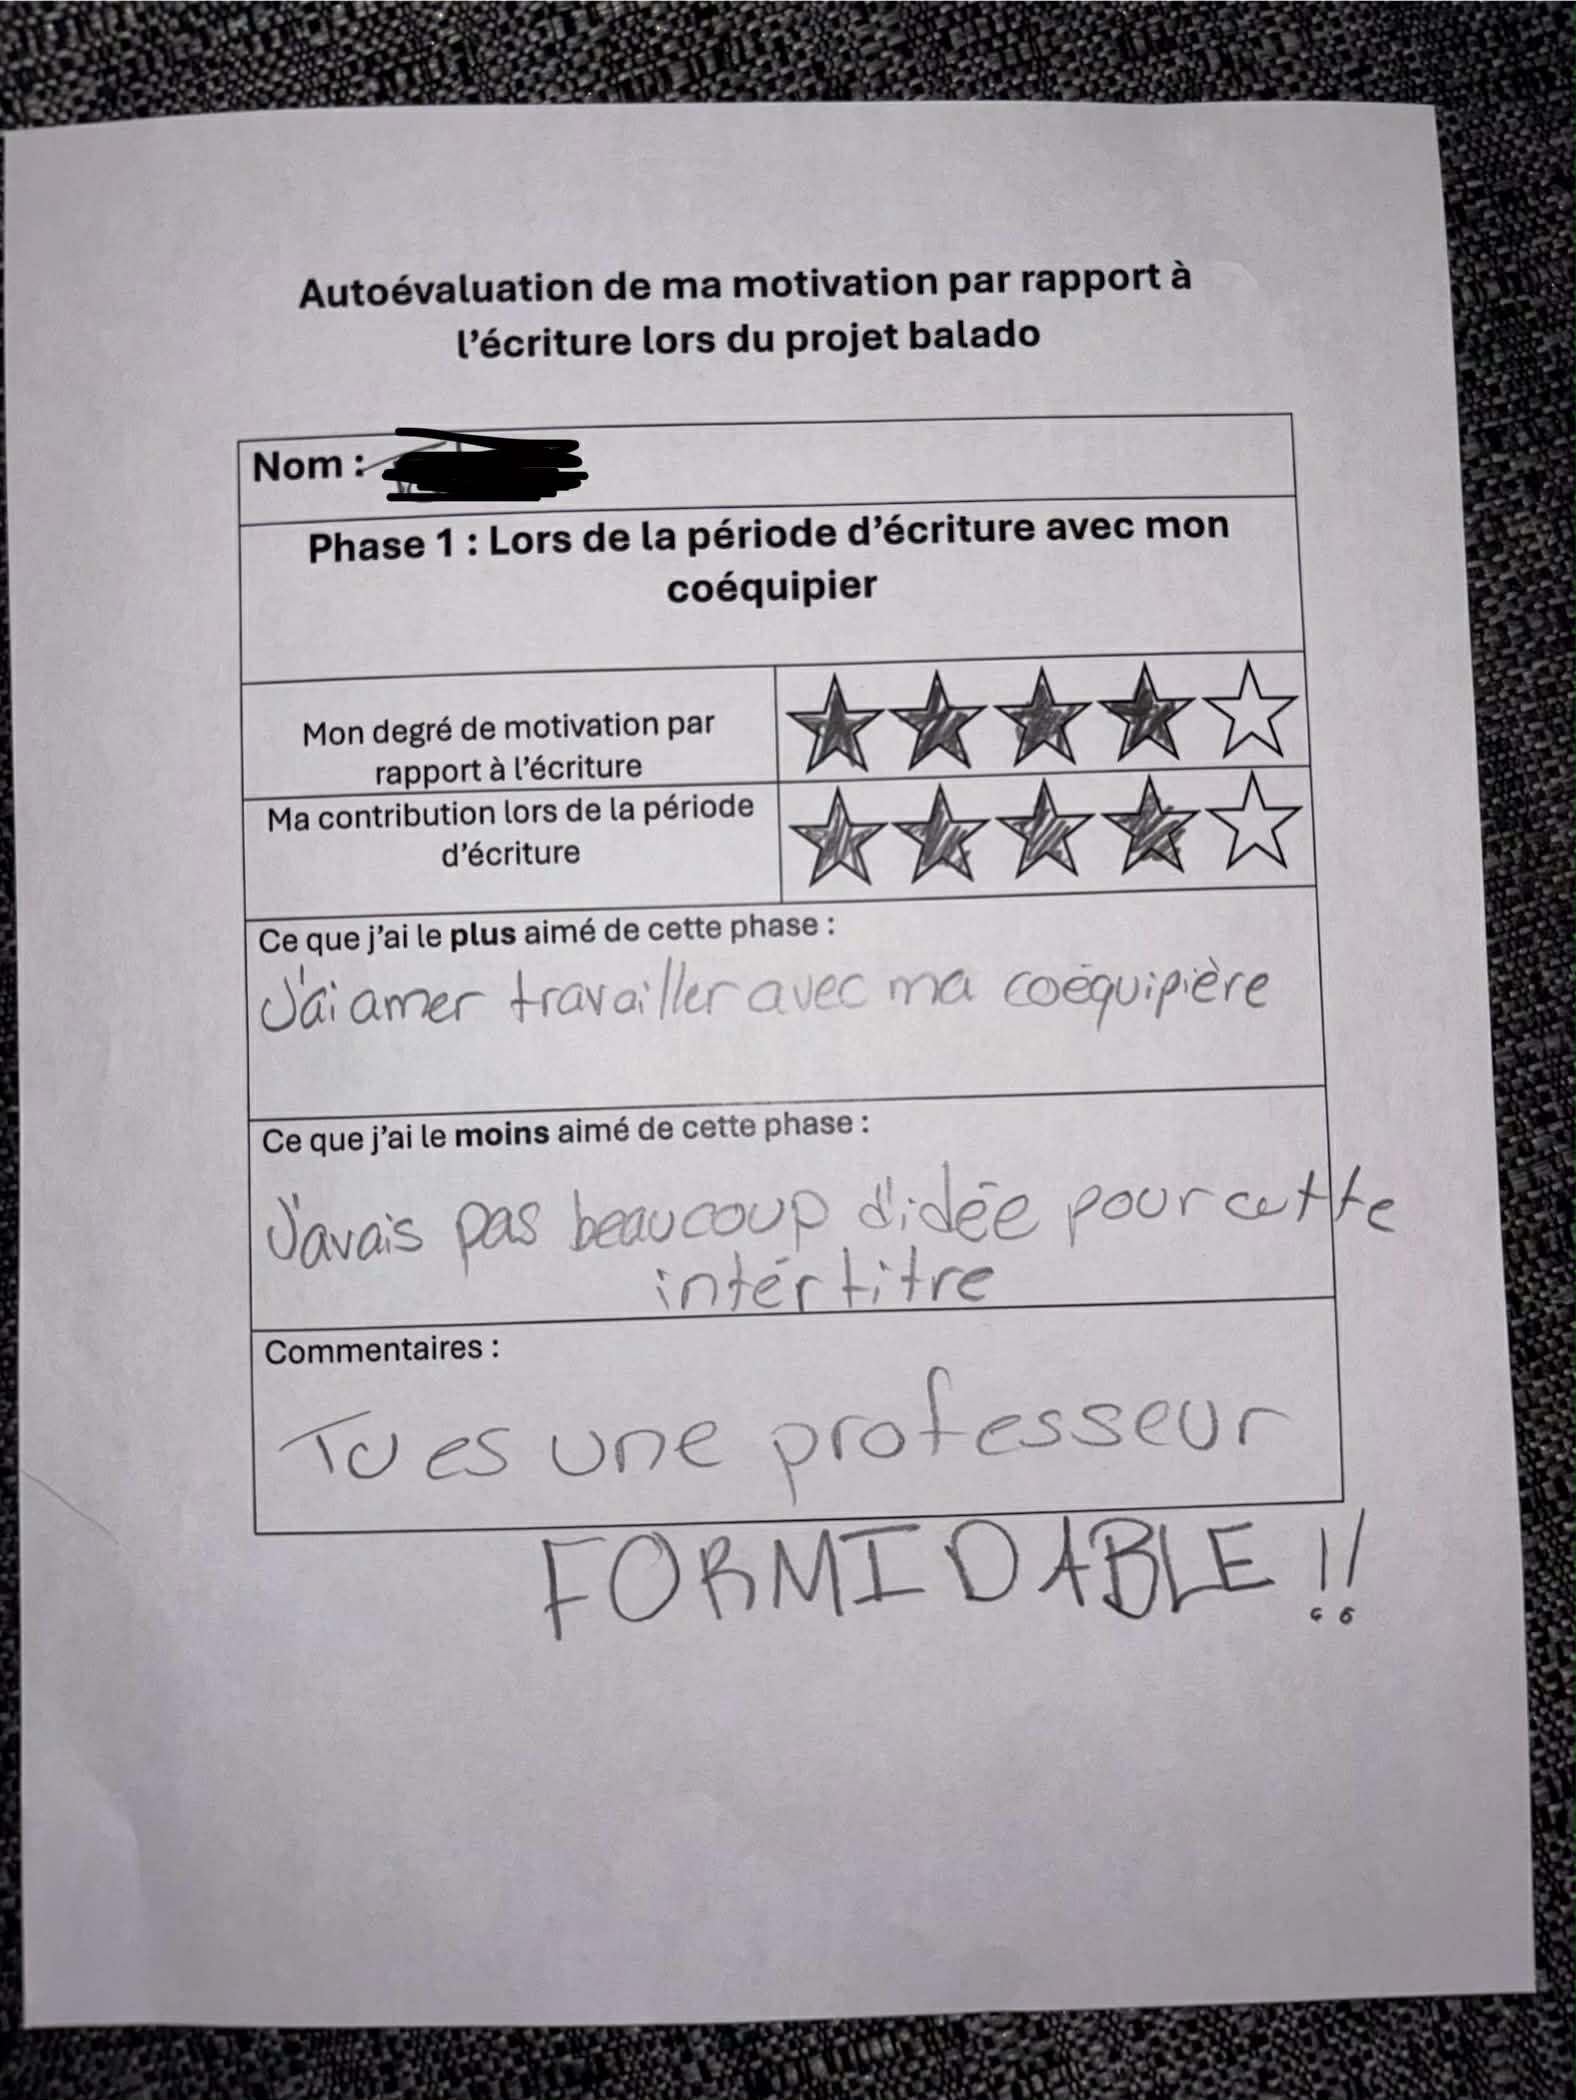 Autoévaluation de ma motivation par rapport à
l'écriture lors du projet balado
Nom :
Phase 1 : Lors de la période d'écriture avec mon
coéquipier
Mon degré de motivation par
rapport à l'écriture
Ma contribution lors de la période
d'écriture
Ce que j'ai le plus aimé de cette phase :
J'ai amer travailler avec ma coéquipière
Ce que j'ai le moins aimé de cette phase :
J'avais pas beaucoup d'idée pour cette
intértitre
Commentaires :
Tu es une professeur
FORMIDABLE !!